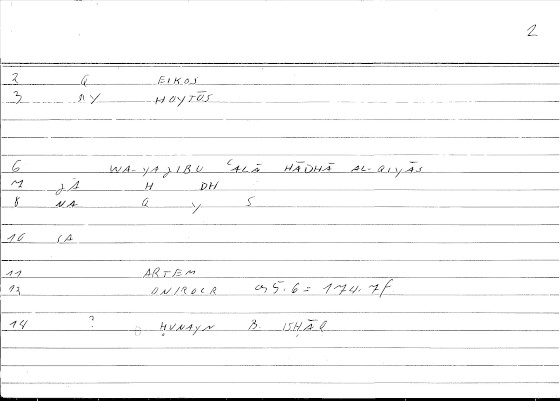 2
2 Q EIKOS
3 QY HOYTŌS
6 WA-YAJIBU ʿALĀ HĀDHĀ AL-QIYĀS
7 JĀ H DH
8 NA Q Y S
10 SA
11 ARTEM
12 ONIROCR 95.6 = 174.7f
14 ? ḤUNAYN B. ISḤĀQ